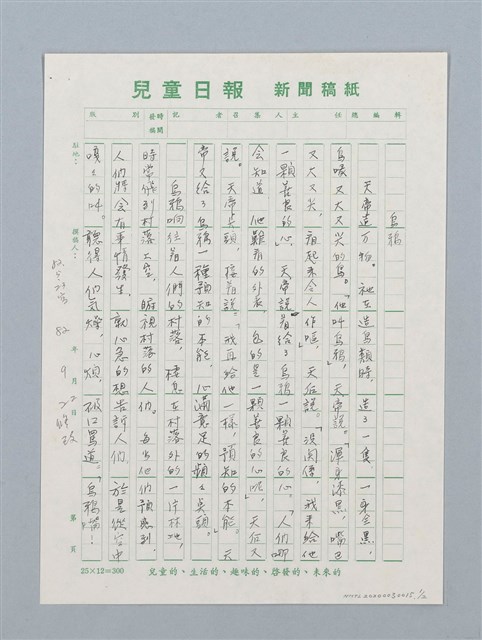 兒童日報 新聞稿紙
版 別 發稿時間 記者 召集人 主任 總編輯
駐地：
撰稿人：
烏鴉
天帝造萬物。祂在造鳥類時，造了一隻，一身全黑，
烏喙又大又尖的鳥。「他叫烏鴉」，天帝說。「渾身漆黑，嘴巴
又大又尖，看起來令人作嘔。」天后說。「沒關係，我來給他
一顆善良的心。」天帝說著給了烏鴉一顆善良的心。「人們哪
會知道，他難看的外表，包的是一顆善良的心呢。」天后又
說。天帝点頭，接著說。「我再給他一樣，預知的本能。」天
帝又給了烏鴉一種預知的本能。心滿意足的頻々点頭。
烏鴉响往著人們的村落，棲息在村落外的一片林地，
時常飛到村落上空，俯視村落的人們。每当他們預感到，
人們將會有事情發生，就心急的想告訴人們，於是從空中
嘎々的叫。聽得人們氣燥，心煩，破口罵道。「烏鴉嘴！
82年9月22日修改
第 頁
25×12=300
兒童的、生活的、趣味的、啓發的、未來的
NMTL20200030615, 1/2